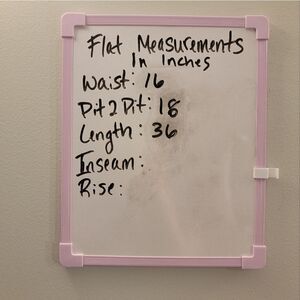 Flat Measurements
In Inches
Waist: 16
Pit 2 Pit: 18
Length: 36
Inseam:
Rise: